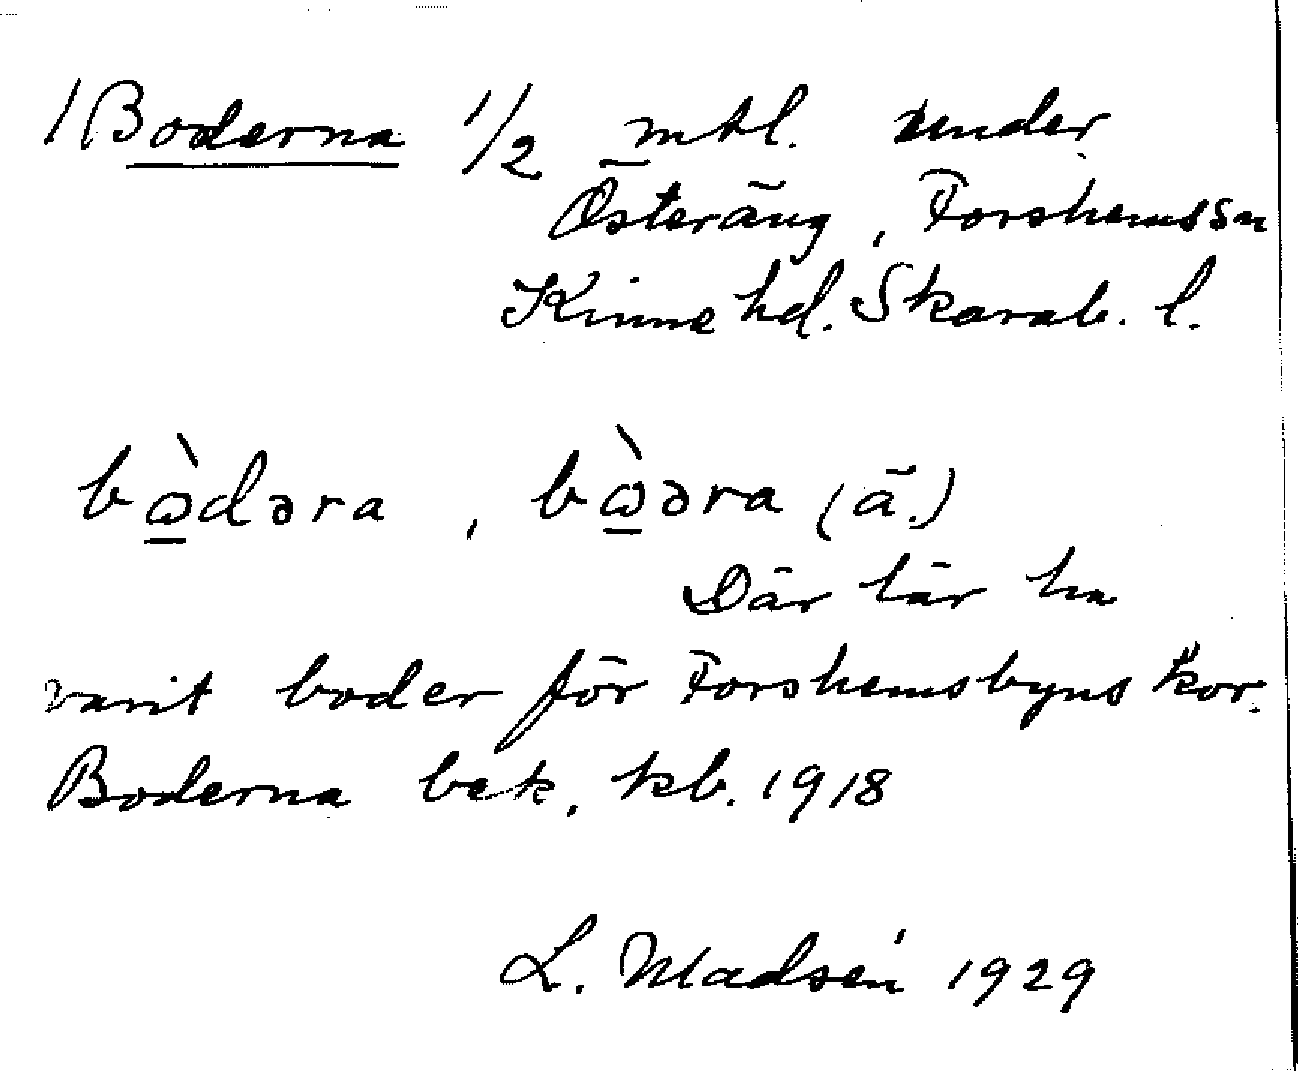 /Boderna 1/2 mtl. under
Österäng, Forshems sn
Kinne hd. Skarab. l.
bὼ̲dəra, bὼ̲əra (ä.)
Där lär ha
varit boder för Forshemsbyns kor.
Boderna bek. kb. 1918
L. Madsén 1929